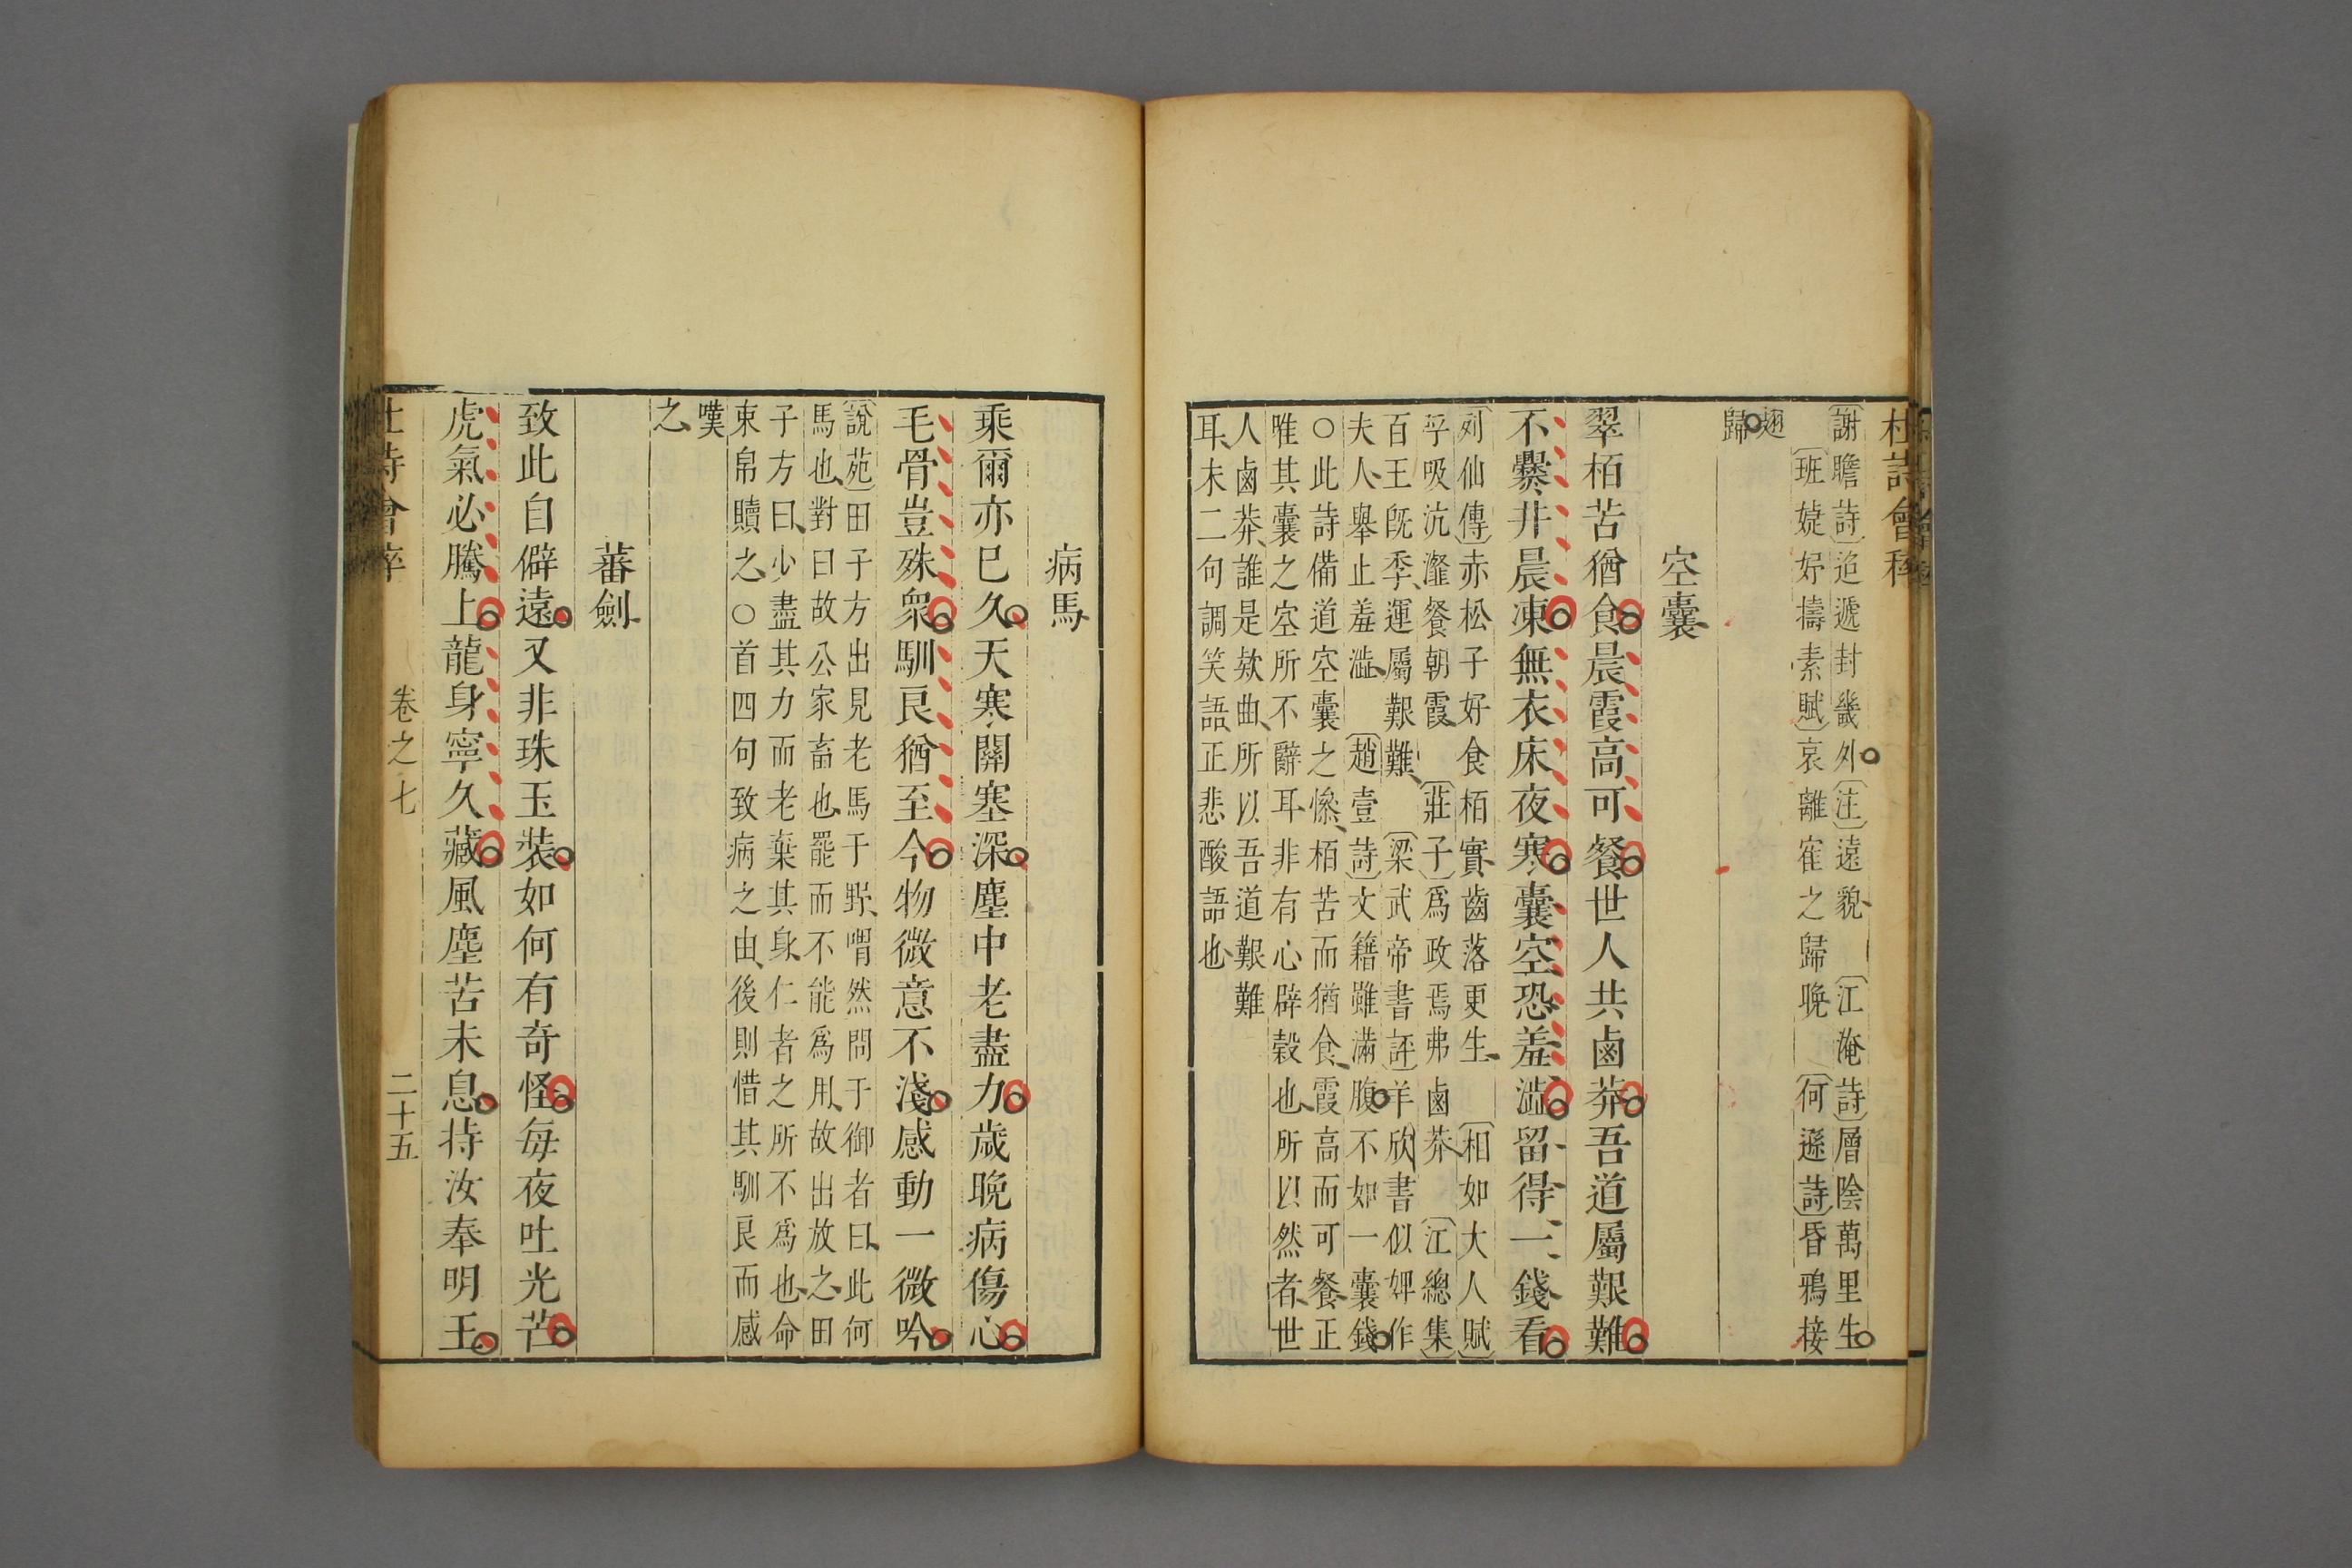 杜詩會稡
謝瞻詩迢遞封畿外注遠貌江淹詩層陰萬里生
班婕妤擣素賦哀離寉之歸晚何遜詩昏鴉接
翅
歸
空囊
翠栢苦猶食晨霞高可餐世人共鹵莽吾道屬艱難
不爨井晨凍無衣床夜寒囊空恐羞澁留得一錢看
列仙傳赤松子好食栢實齒落更生相如大人賦
呼吸沆瀣餐朝霞莊子爲政焉弗鹵莽江總集
百王旣季運屬艱難梁武帝書評羊欣書似婢作
夫人舉止羞澁趙壹詩文籍雖滿腹不如一囊錢
○此詩備道空囊之慘栢苦而猶食霞高而可餐正
唯其囊之空所不辭耳非有心辟穀也所以然者世
人鹵莽誰是欵曲所以吾道艱難
耳末二句調笑語正悲酸語也
病馬
乘爾亦巳久天寒關塞深塵中老盡力歲晚病傷心
毛骨豈殊衆馴良猶至今物微意不淺感動一微吟
說苑田子方出見老馬于野喟然問于御者曰此何
馬也對曰故公家畜也罷而不能爲用故出放之田
子方曰少盡其力而老棄其身仁者之所不爲也命
束帛贖之○首四句致病之由後則惜其馴良而感
嘆
之
蕃劍
致此自僻遠又非珠玉裝如何有奇怪每夜吐光芒
虎氣必騰上龍身寧久藏風塵苦未息持汝奉明王
杜詩會稡
卷之七
二十五